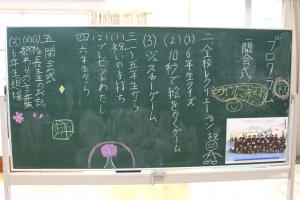 プログラム
一 開会式
二 全校レクリエーション
(1) 6年生クイズ
(2) 10秒で絵をかくゲーム
(3) ジェスチャーゲーム
三 1~5年生から
(1) 祝いの手打ち
(2) プレゼントわたし
四 6年生から
五 閉会式
(1) 校長先生のお話
(2) 終わりの言葉
(3) 6年生退場